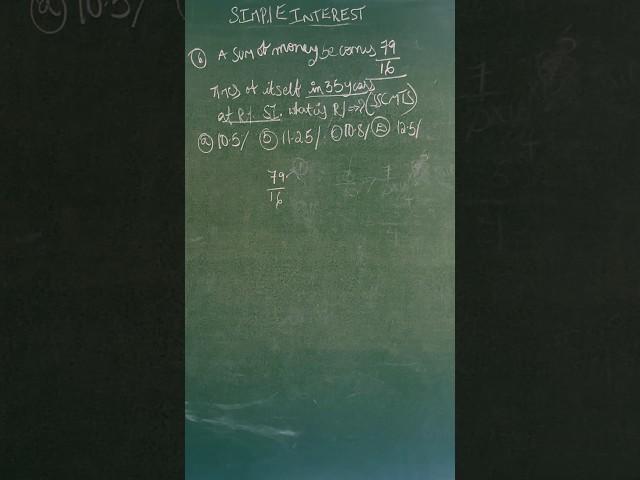 SIMPLE INTEREST
⑥ A SUM of money becomes 79/16
times of itself in 35 years
at R% SI, what is R% => ? (SSC MTS)
ⓐ 10.5% ⓑ 11.25% ⓒ 10.8% 12.5%
79/16